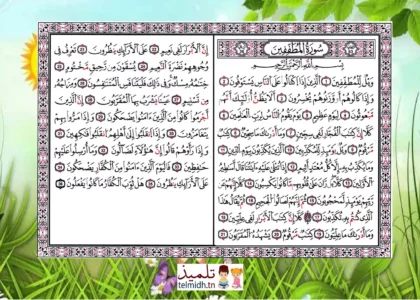 سُورَةُ الْمُطَفِّفِينَ
بِسْمِ اللَّهِ الرَّحْمَٰنِ الرَّحِيمِ
وَيْلٌ لِّلْمُطَفِّفِينَ ① الَّذِينَ إِذَا اكْتَالُوا عَلَى النَّاسِ يَسْتَوْفُونَ ②
وَإِذَا كَالُوهُمْ أَو وَّزَنُوهُمْ يُخْسِرُونَ ③ أَلَا يَظُنُّ أُولَٰئِكَ أَنَّهُم
مَّبْعُوثُونَ ④ لِيَوْمٍ عَظِيمٍ ⑤ يَوْمَ يَقُومُ النَّاسُ لِرَبِّ الْعَالَمِينَ ⑥
كَلَّا إِنَّ كِتَابَ الْفُجَّارِ لَفِي سِجِّينٍ ⑦ وَمَا أَدْرَاكَ مَا سِجِّينٌ ⑧ كِتَابٌ
مَّرْقُومٌ ⑨ وَيْلٌ يَوْمَئِذٍ لِّلْمُكَذِّبِينَ ⑩ الَّذِينَ يُكَذِّبُونَ بِيَوْمِ الدِّينِ ⑪
وَمَا يُكَذِّبُ بِهِ إِلَّا كُلُّ مُعْتَدٍ أَثِيمٍ ⑫ إِذَا تُتْلَىٰ عَلَيْهِ آيَاتُنَا قَالَ أَسَاطِيرُ
الْأَوَّلِينَ ⑬ كَلَّا بَلْ رَانَ عَلَىٰ قُلُوبِهِم مَّا كَانُوا يَكْسِبُونَ ⑭ كَلَّا إِنَّهُمْ عَن
رَّبِّهِمْ يَوْمَئِذٍ لَّمَحْجُوبُونَ ⑮ ثُمَّ إِنَّهُمْ لَصَالُو الْجَحِيمِ ⑯ ثُمَّ يُقَالُ هَٰذَا
الَّذِي كُنتُم بِهِ تُكَذِّبُونَ ⑰ كَلَّا إِنَّ كِتَابَ الْأَبْرَارِ لَفِي عِلِّيِّينَ ⑱
وَمَا أَدْرَاكَ مَا عِلِّيُّونَ ⑲ كِتَابٌ مَّرْقُومٌ ⑳ يَشْهَدُهُ الْمُقَرَّبُونَ ㉑
إِنَّ الْأَبْرَارَ لَفِي نَعِيمٍ ㉒ عَلَى الْأَرَائِكِ يَنظُرُونَ ㉓ تَعْرِفُ فِي
وُجُوهِهِمْ نَضْرَةَ النَّعِيمِ ㉔ يُسْقَوْنَ مِن رَّحِيقٍ مَّخْتُومٍ ㉕
خِتَامُهُ مِسْكٌ وَفِي ذَٰلِكَ فَلْيَتَنَافَسِ الْمُتَنَافِسُونَ ㉖ وَمِزَاجُهُ
مِن تَسْنِيمٍ ㉗ عَيْنًا يَشْرَبُ بِهَا الْمُقَرَّبُونَ ㉘ إِنَّ الَّذِينَ
أَجْرَمُوا كَانُوا مِنَ الَّذِينَ آمَنُوا يَضْحَكُونَ ㉙ وَإِذَا مَرُّوا بِهِمْ
يَتَغَامَزُونَ ㉚ وَإِذَا انقَلَبُوا إِلَىٰ أَهْلِهِمُ انقَلَبُوا فَكِهِينَ ㉛
وَإِذَا رَأَوْهُمْ قَالُوا إِنَّ هَٰؤُلَاءِ لَضَالُّونَ ㉜ وَمَا أُرْسِلُوا عَلَيْهِمْ
حَافِظِينَ ㉝ فَالْيَوْمَ الَّذِينَ آمَنُوا مِنَ الْكُفَّارِ يَضْحَكُونَ ㉞
عَلَى الْأَرَائِكِ يَنظُرُونَ ㉟ هَلْ ثُوِّبَ الْكُفَّارُ مَا كَانُوا يَفْعَلُونَ ㊱
تلميذ
telmidh.tn